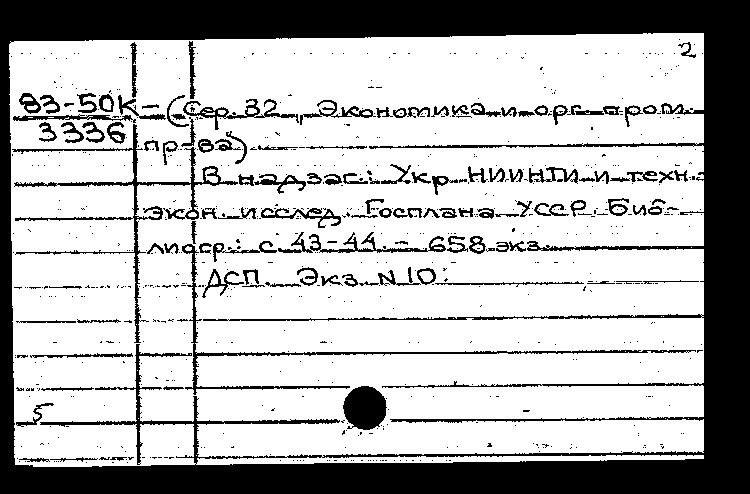 2
83-50К – (Сер. 32 „Экономика и орг. пром.
3336 пр-ва")
В надзаг.: Укр НИИНТИ и техн.-
экон. исслед. Госплана УССР. Биб-
лиогр.: с. 43-44. – 658 экз.
ДСП. Экз. N 10:
5